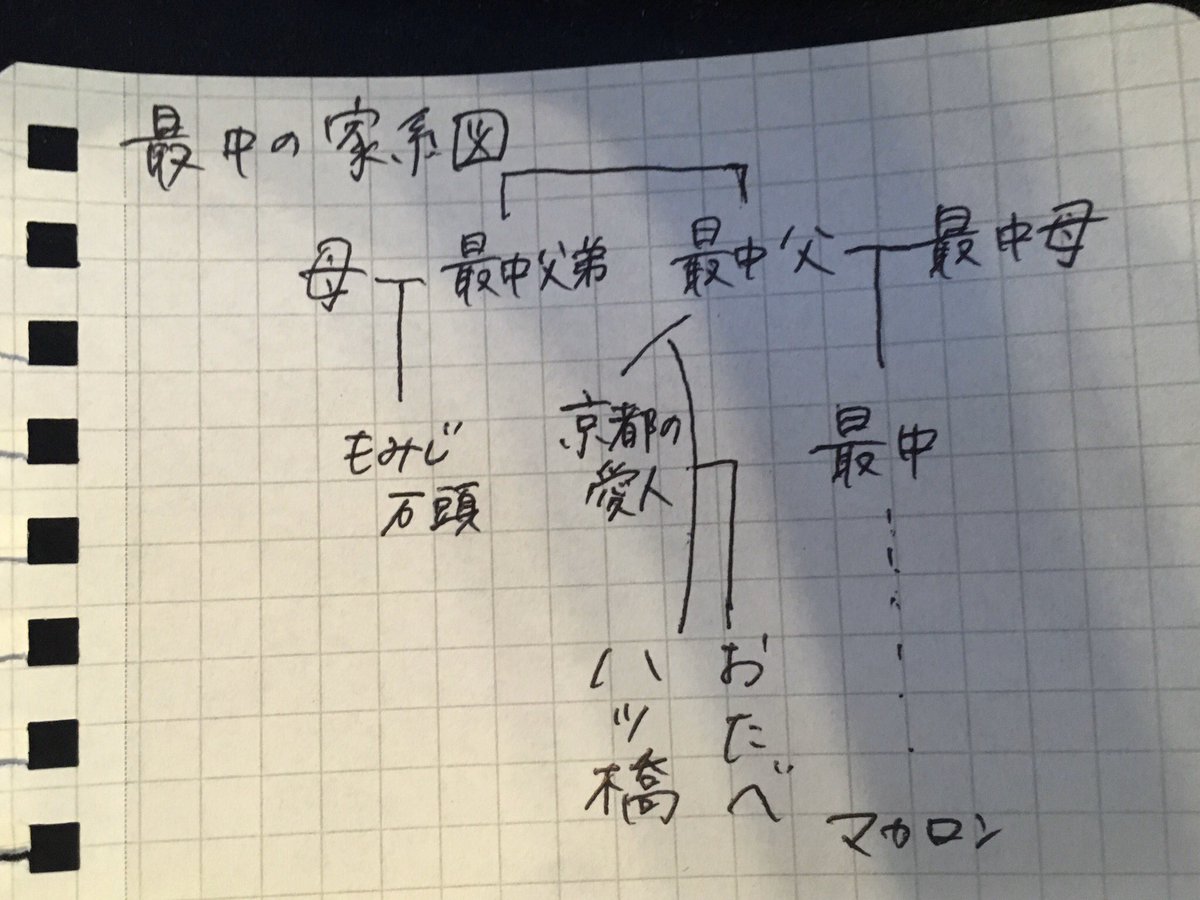 最中の家系図
母 最中父弟 最中父 最中母
もみじ
万頭
京都の
愛人
最中
八ツ橋
おたべ
マカロン